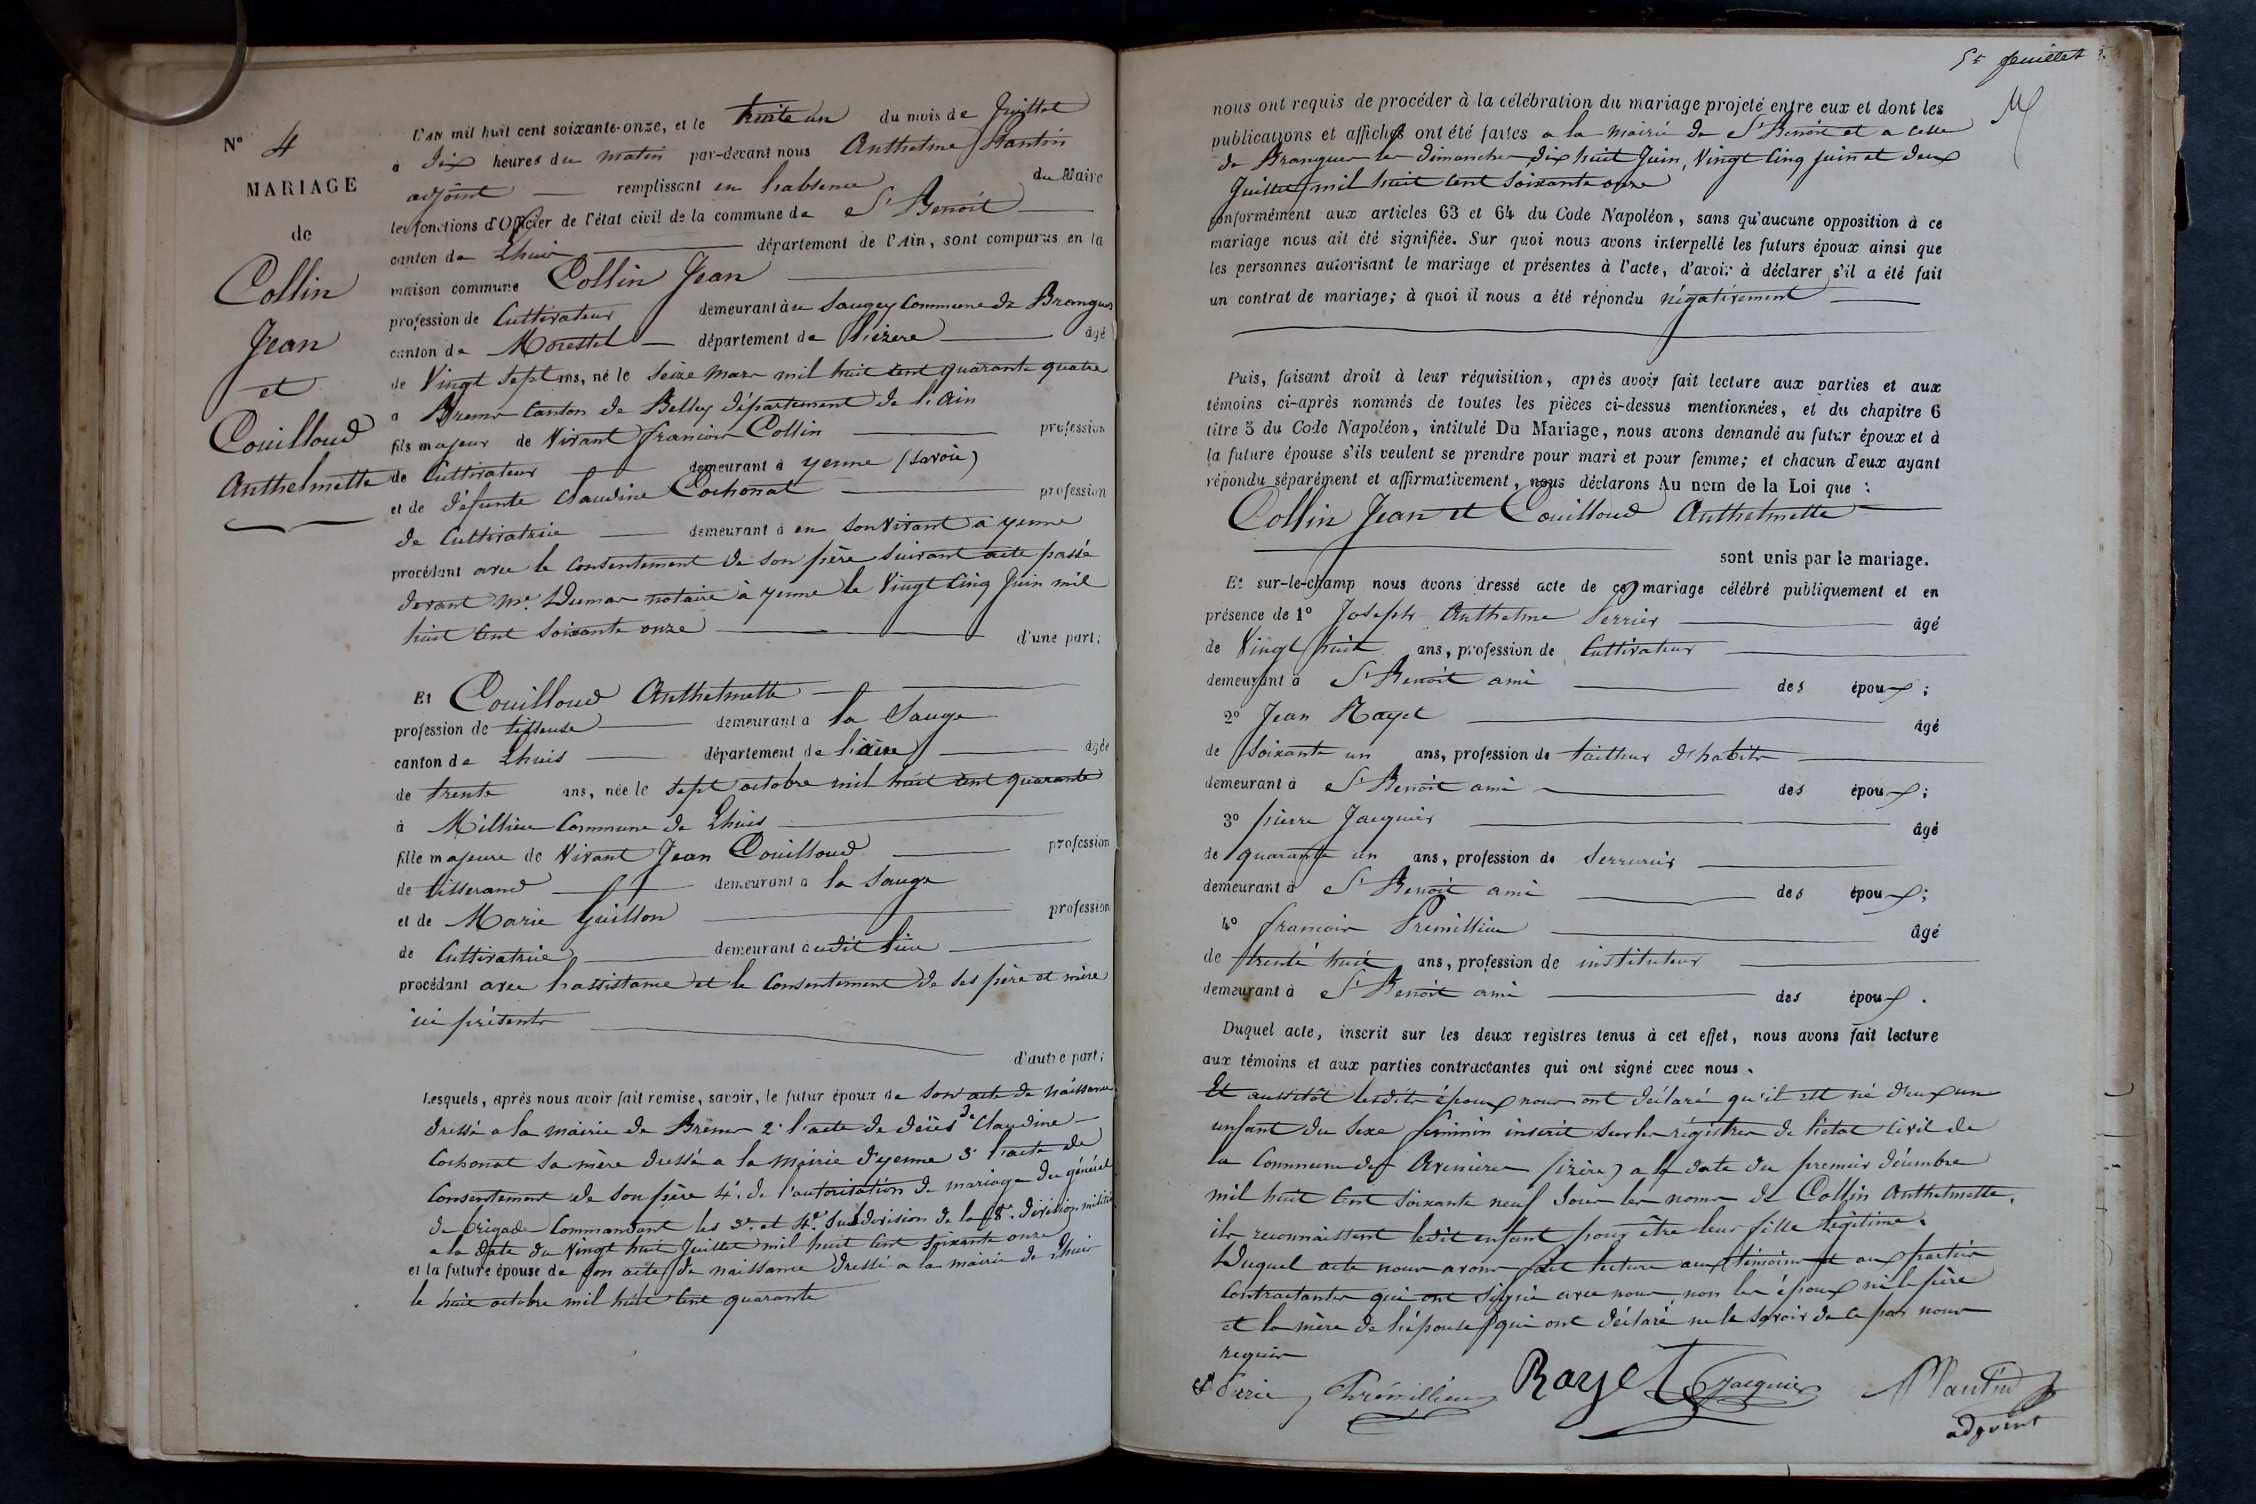 N° 4
MARIAGE
de
Collin
Jean
et
Couilloud
Anthelmette
L'AN mil huit cent soixante-onze, et le trente un du mois de Juillet
à dix heures du matin par-devant nous Anthelme Plantin
adjoint remplissant en l'absence du Maire
les fonctions d'Officier de l'état civil de la commune de St Benoit
canton de Lhuis département de l'Ain, sont comparus en la
maison commune Collin Jean
profession de Cultivateur demeurant à au Saugey Commune de Brangues
canton de Morestel département de l'isère âgé
de Vingt sept ans, né le Seize Mars mil huit cent quarante quatre
à Brens Canton de Belley département de l'Ain
fils majeur de Vivant francois Collin profession
de Cultivateur demeurant à yenne (Savoie)
et de défunte Claudine Cochonat profession
de Cultivatrice demeurant à en son Vivant à yenne
procédant avec le Consentement de son père suivant acte passé
devant Me Dumas notaire à yenne le Vingt Cinq Juin mil
huit Cent Soixante onze d'une part;
Et Couilloud Anthelmette
profession de tisseuse demeurant à la Sauge
canton de Lhuis département de l'ain âgée
de trente ans, née le sept octobre mil huit cent quarante
à Millieu Commune de Lhuis
fille majeure de Vivant Jean Couilloud profession
de tisserand demeurant à la Sauge
et de Marie Guillon profession
de Cultivatrice demeurant à udit lieu
procédant avec l'assistance et le Consentement de ses père et mère
ici présents
d'autre part;
Lesquels, après nous avoir fait remise, savoir, le futur époux de son acte de naissance
dressé a la mairie de Brens 2° l'acte de décès de Claudine
Cochonat sa mère dressé a la Mairie d'yenne 3° l'acte de
Consentement de son père 4° de l'autorisation de mariage du général
de brigade Commandant les 3e et 4e Subdivision de la 8e division militaire
a la date du Vingt huit Juillet mil huit Cent Soixante onze
et la future épouse de son acte de naissance dressé a la mairie de Lhuis
le huit octobre mil huit Cent quarante
5e feuillet
nous ont requis de procéder à la célébration du mariage projeté entre eux et dont les
publications et affiches ont été faites a la Mairie de St Benoit et a celle
de Brangues les dimanches dix huit Juin, Vingt Cinq Juin et deux
Juillet mil huit Cent Soixante onze
conformément aux articles 63 et 64 du Code Napoléon, sans qu'aucune opposition à ce
mariage nous ait été signifiée. Sur quoi nous avons interpellé les futurs époux ainsi que
les personnes autorisant le mariage et présentes à l'acte, d'avoir à déclarer s'il a été fait
un contrat de mariage; à quoi il nous a été répondu négativement
Puis, faisant droit à leur réquisition, après avoir fait lecture aux parties et aux
témoins ci-après nommés de toutes les pièces ci-dessus mentionnées, et du chapitre 6
titre 5 du Code Napoléon, intitulé Du Mariage, nous avons demandé au futur époux et à
la future épouse s'ils veulent se prendre pour mari et pour femme; et chacun d'eux ayant
répondu séparément et affirmativement, nous déclarons Au nom de la Loi que :
Collin Jean et Couilloud Anthelmette
sont unis par le mariage.
Et sur-le-champ nous avons dressé acte de ce mariage célébré publiquement et en
présence de 1° Joseph Anthelme Perrier âgé
de Vingt huit ans, profession de Cultivateur
demeurant à St Benoit ami des époux;
2° Jean Rayet âgé
de Soixante un ans, profession de tailleur d'habits
demeurant à St Benoit ami des époux;
3° pierre Jacquier âgé
de quarante un ans, profession de Serrurier
demeurant à St Benoit ami des époux;
4° francois Premillieu âgé
de trente huit ans, profession de instituteur
demeurant à St Benoit ami des époux.
Duquel acte, inscrit sur les deux registres tenus à cet effet, nous avons fait lecture
aux témoins et aux parties contractantes qui ont signé avec nous.
Et aussitôt lesdits époux nous ont déclaré qu'il est né d'eux un
enfant du sexe féminin inscrit sur les régistres de l'état Civil de
la Commune des Avenières (isère) a la date du premier décembre
mil huit Cent soixante neuf Sous les noms de Collin Anthelmette,
ils reconnaissent ledit enfant pour être leur fille légitime.
Duquel acte nous avons fait lecture aux témoins et aux parties
Contractantes qui ont signé avec nous non les époux ni le père
et la mère de l'épouse qui ont déclaré ne le savoir de ce par nous
requis
Prémillieu Rayet Jacquier Plantin
adjoint